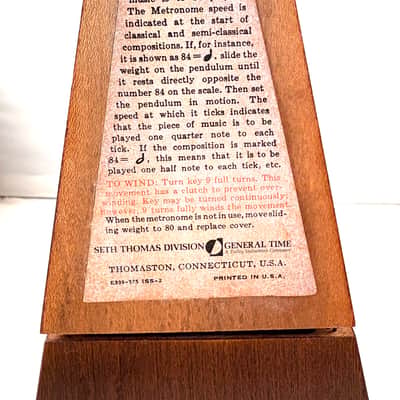 The Metronome speed is
indicated at the start of
classical and semi-classical
compositions. If, for instance,
it is shown as 84=♩, slide the
weight on the pendulum until
it rests directly opposite the
number 84 on the scale. Then set
the pendulum in motion. The
speed at which it ticks indicates
that the piece of music is to be
played one quarter note to each
tick. If the composition is marked
84= 𝅗𝅥, this means that it is to be
played one half note to each tick, etc.
TO WIND: Turn key 9 full turns. This
movement has a clutch to prevent over-
winding. Key may be turned continuously;
however, 9 turns fully winds the movement.
When the metronome is not in use, move slid-
ing weight to 80 and replace cover.
SETH THOMAS DIVISION GENERAL TIME
THOMASTON, CONNECTICUT, U.S.A.
PRINTED IN U.S.A.